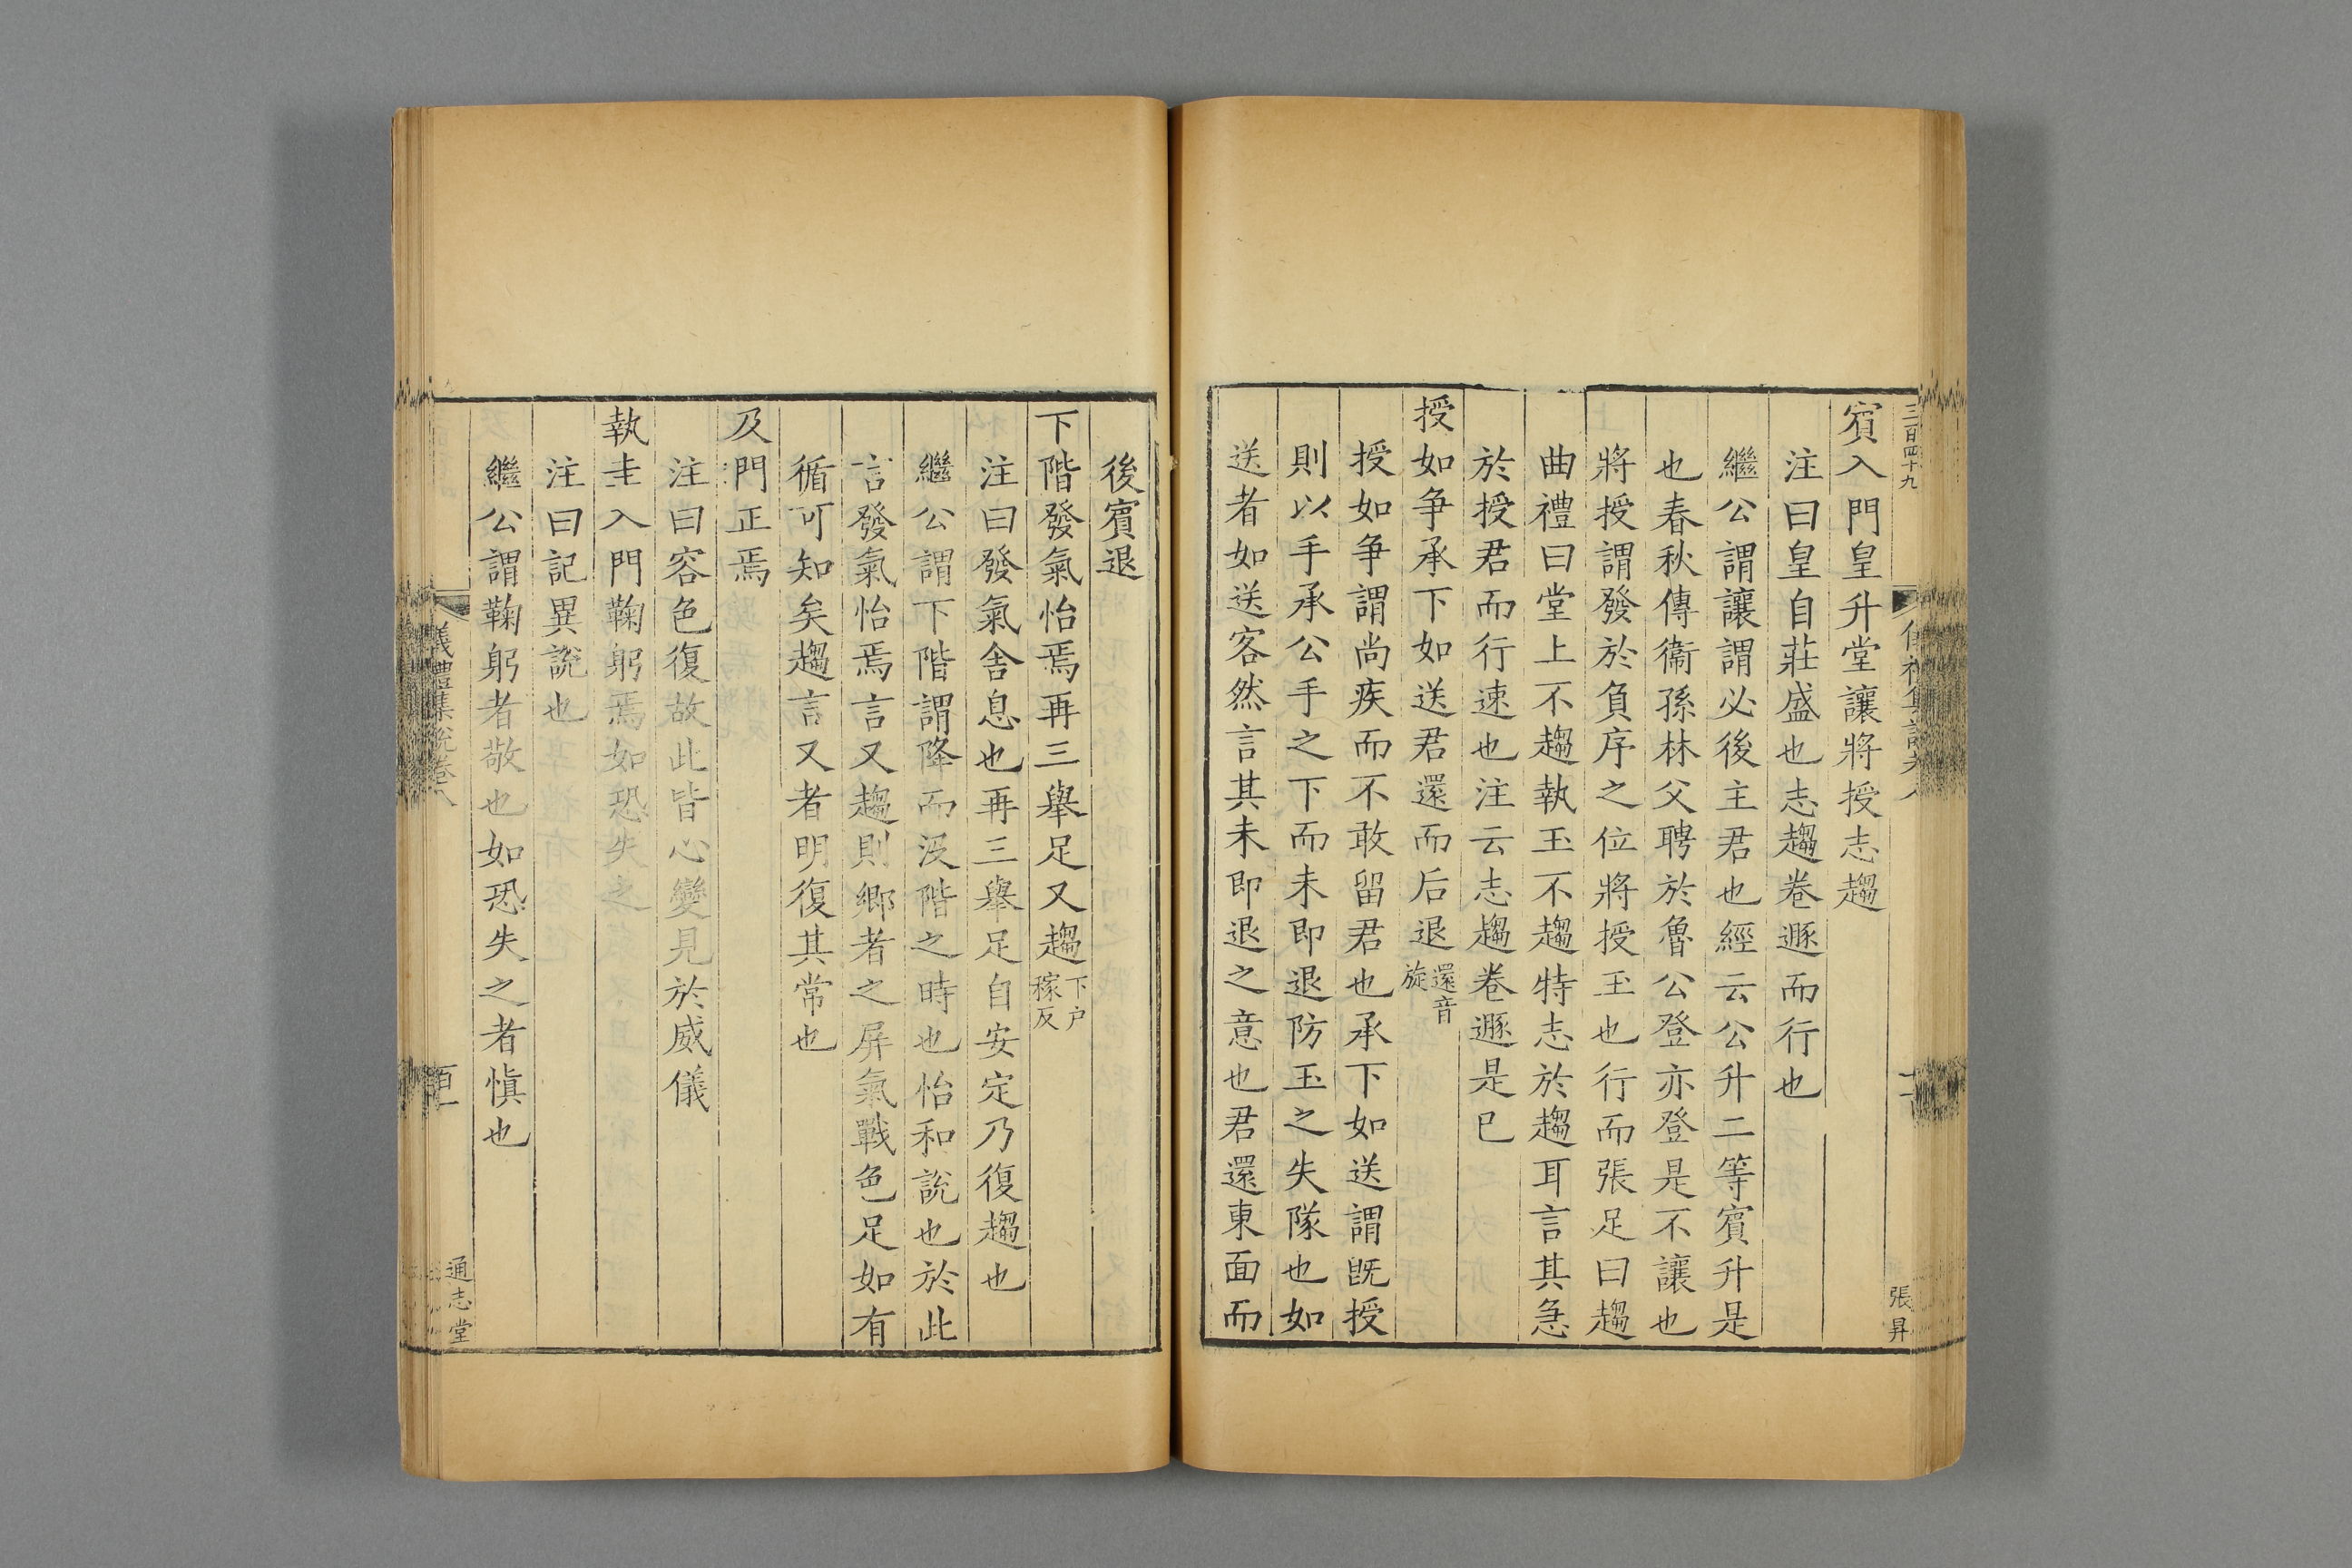 三百四十九
賔入門皇升堂讓將授志趨
注曰皇自莊盛也志趨卷遯而行也
繼公謂讓謂必後主君也經云公升二等賔升是
也春秋傳衞孫林父聘於魯公登亦登是不讓也
將授謂發於負序之位將授玉也行而張足曰趨
曲禮曰堂上不趨執玉不趨特志於趨耳言其急
於授君而行速也注云志趨卷遯是已
授如争承下如送君還而后退還音旋
授如爭謂尚疾而不敢留君也承下如送謂既授
則以手承公手之下而未即退防玉之失隊也如
送者如送客然言其未即退之意也君還東面而
張昇
後賔退
下階發氣怡焉再三舉足又趨下户稼反
注曰發氣舍息也再三舉足自安定乃復趨也
繼公謂下階謂降而沒階之時也怡和說也於此
言發氣怡焉言又趨則鄉者之屏氣戰色足如有
循可知矣趨言又者明復其常也
及門正焉
注曰容色復故此皆心變見於威儀
執圭入門鞠躬焉如恐失之
注曰記異說也
繼公謂鞠躬者敬也如恐失之者慎也
儀禮集說卷八
百一
通志堂